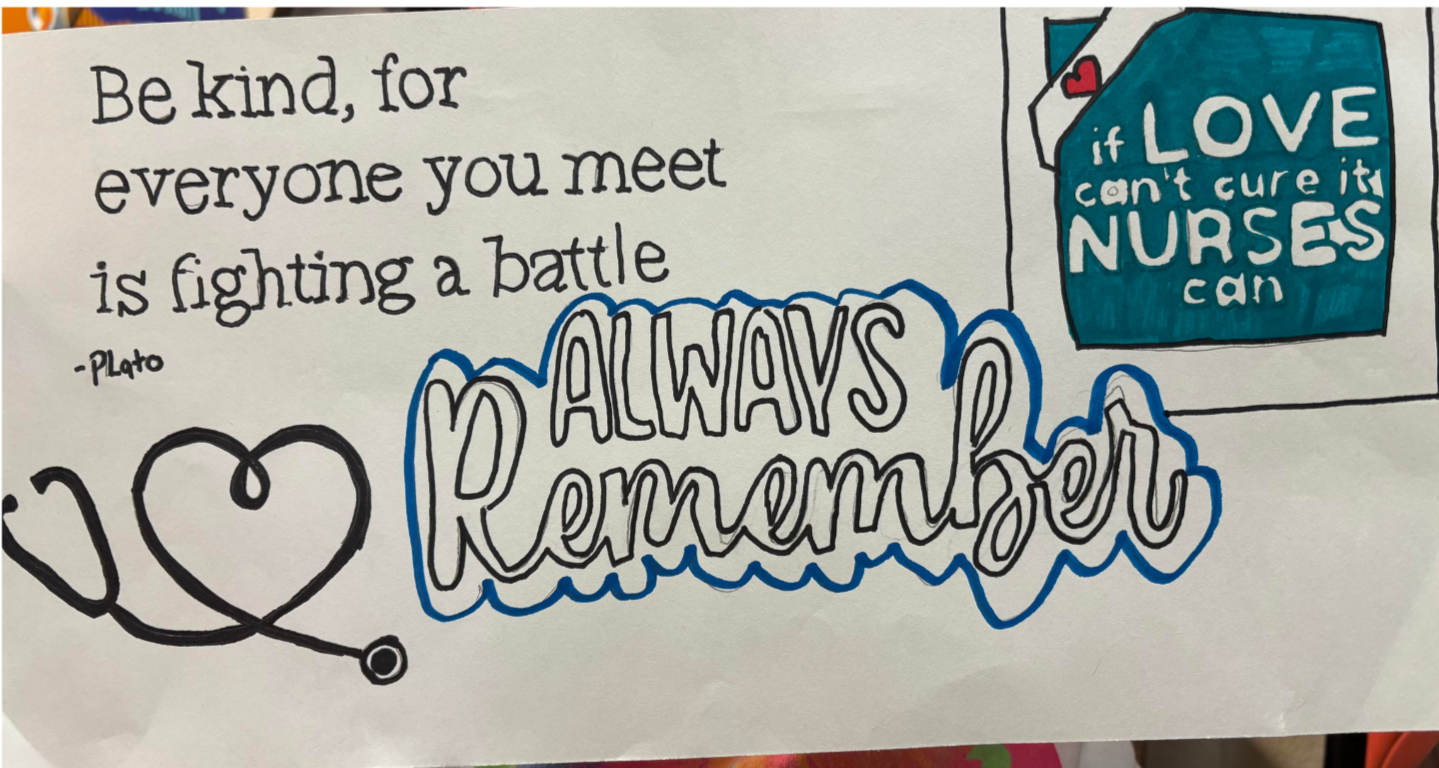 Be kind, for
everyone you meet
is fighting a battle
-PLato
ALWAYS
Remember
if LOVE
can't cure it,
NURSES
can